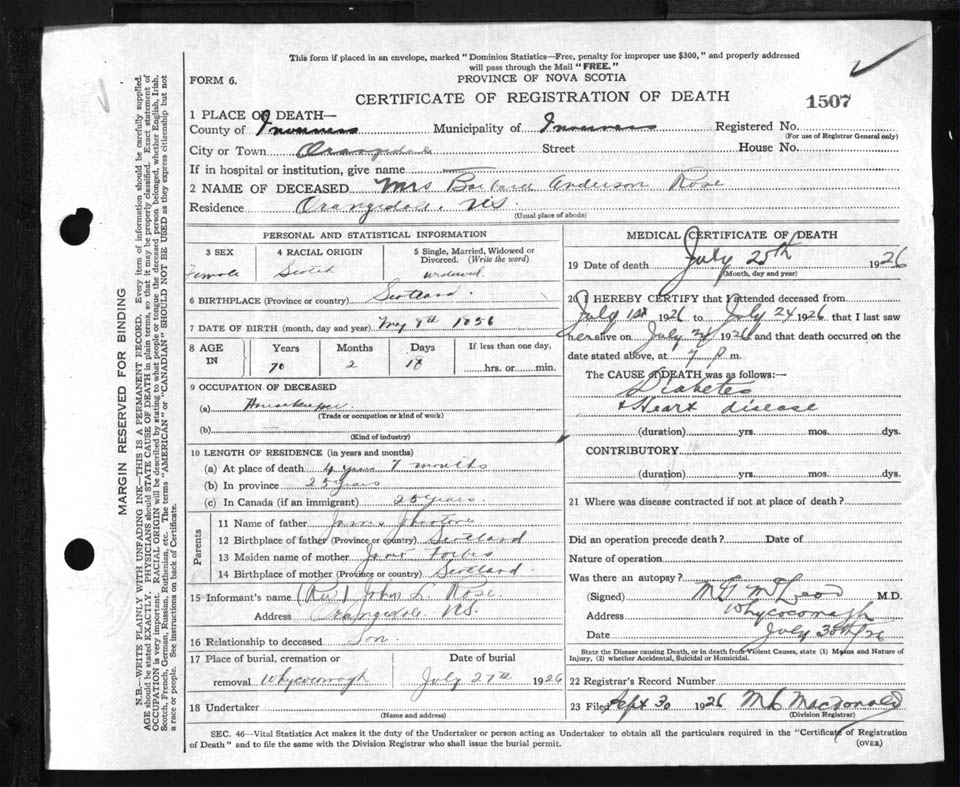 This form if placed in an envelope, marked "Dominion Statistics—Free, penalty for improper use $300," and properly addressed
will pass through the Mail "FREE."
FORM 6.
PROVINCE OF NOVA SCOTIA
CERTIFICATE OF REGISTRATION OF DEATH
1507
1 PLACE OF DEATH—
County of Inverness Municipality of Inverness Registered No.
(For use of Registrar General only)
City or Town Orangedale Street House No.
If in hospital or institution, give name
2 NAME OF DECEASED Mrs Barbara Anderson Rose
Residence Orangedale, N.S.
(Usual place of abode)
PERSONAL AND STATISTICAL INFORMATION
3 SEX 4 RACIAL ORIGIN 5 Single, Married, Widowed or
Divorced. (Write the word)
Female Scotch widowed.
6 BIRTHPLACE (Province or country) Scotland.
7 DATE OF BIRTH (month, day and year) May 8th 1856
8 AGE IN Years Months Days If less than one day,
70 2 18 hrs. or min.
9 OCCUPATION OF DECEASED
(a) Housekeeper
(Trade or occupation or kind of work)
(b)
(Kind of industry)
10 LENGTH OF RESIDENCE (in years and months)
(a) At place of death 4 years 7 months
(b) In province 25 years
(c) In Canada (if an immigrant) 25 years.
Parents
11 Name of father James
12 Birthplace of father (Province or country) Scotland
13 Maiden name of mother Janet Forbes
14 Birthplace of mother (Province or country) Scotland.
15 Informant's name (Rev.) John L. Rose.
Address Orangedale N.S.
16 Relationship to deceased Son.
17 Place of burial, cremation or Date of burial
removal Whycocomagh July 27th 1926
18 Undertaker
(Name and address)
MEDICAL CERTIFICATE OF DEATH
19 Date of death July 25th 1926
(Month, day and year)
20 I HEREBY CERTIFY that I attended deceased from
July 1st 1926 to July 24 1926 that I last saw
her alive on July 24 1926 and that death occurred on the
date stated above, at 7 P. m.
The CAUSE OF DEATH was as follows:—
Diabetes
& Heart disease
(duration) yrs. mos. dys.
CONTRIBUTORY
(duration) yrs. mos. dys.
21 Where was disease contracted if not at place of death?
Did an operation precede death? Date of
Nature of operation
Was there an autopsy?
(Signed) M G McLeod M.D.
Address Whycocomagh
Date July 30th/26
State the Disease causing Death, or in death from Violent Causes, state (1) Means and Nature of
Injury, (2) whether Accidental, Suicidal or Homicidal.
22 Registrar's Record Number
23 Filed Sept 30 1926 MacDonald
(Division Registrar)
SEC. 46—Vital Statistics Act makes it the duty of the Undertaker or person acting as Undertaker to obtain all the particulars required in the "Certificate of Registration
of Death" and to file the same with the Division Registrar who shall issue the burial permit.
(OVER)
MARGIN RESERVED FOR BINDING
N.B.—WRITE PLAINLY WITH UNFADING INK—THIS IS A PERMANENT RECORD. Every item of information should be carefully supplied.
AGE should be stated EXACTLY. PHYSICIANS should STATE CAUSE OF DEATH in plain terms, so that it may be properly classified. Exact statement of
OCCUPATION is very important. RACIAL ORIGIN will be described by stating to what people or tongue the deceased person belonged, whether English, Irish,
Scotch, French, German, Russian, Ruthenian, etc. The terms "AMERICAN" or "CANADIAN" SHOULD NOT BE USED as they express citizenship but not
a race or people. See instructions on back of Certificate.